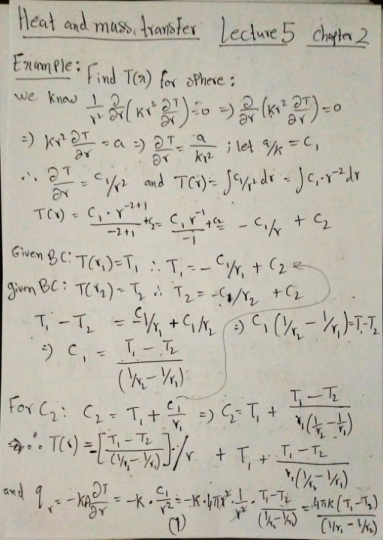 Heat and mass, transfer Lecture 5 chapter 2
Example: Find T(r) for sphere:
we know 1/r² ∂/∂r (Kr² ∂T/∂r) = 0 => ∂/∂r (Kr² ∂T/∂r) = 0
=> Kr² ∂T/∂r = a => ∂T/∂r = a/Kr² ; let a/K = C₁
∴ ∂T/∂r = C₁/r² and T(r) = ∫C₁/r² dr = ∫C₁·r⁻² dr
T(r) = C₁·r⁻²⁺¹/-2+1 + C₂ = C₁r⁻¹/-1 + C₂ = -C₁/r + C₂
Given BC: T(r₁) = T₁ ∴ T₁ = -C₁/r₁ + C₂
given BC: T(r₂) = T₂ ∴ T₂ = -C₁/r₂ + C₂
T₁ - T₂ = -C₁/r₁ + C₁/r₂ => C₁(1/r₂ - 1/r₁) = T₁-T₂
=> C₁ = T₁ - T₂/(1/r₂ - 1/r₁)
For C₂: C₂ = T₁ + C₁/r₁ => C₂ = T₁ + T₁ - T₂/r₁(1/r₂ - 1/r₁)
∴ T(r) = -[T₁ - T₂/(1/r₂ - 1/r₁)]·/r + T₁ + T₁ - T₂/r₁(1/r₂ - 1/r₁)
and qᵣ = -KA ∂T/∂r = -K· C₁/r² = -K·4πr²· 1/r² · T₁-T₂/(1/r₂ - 1/r₁) = 4πK(T₁-T₂)/(1/r₁ - 1/r₂)
(1)